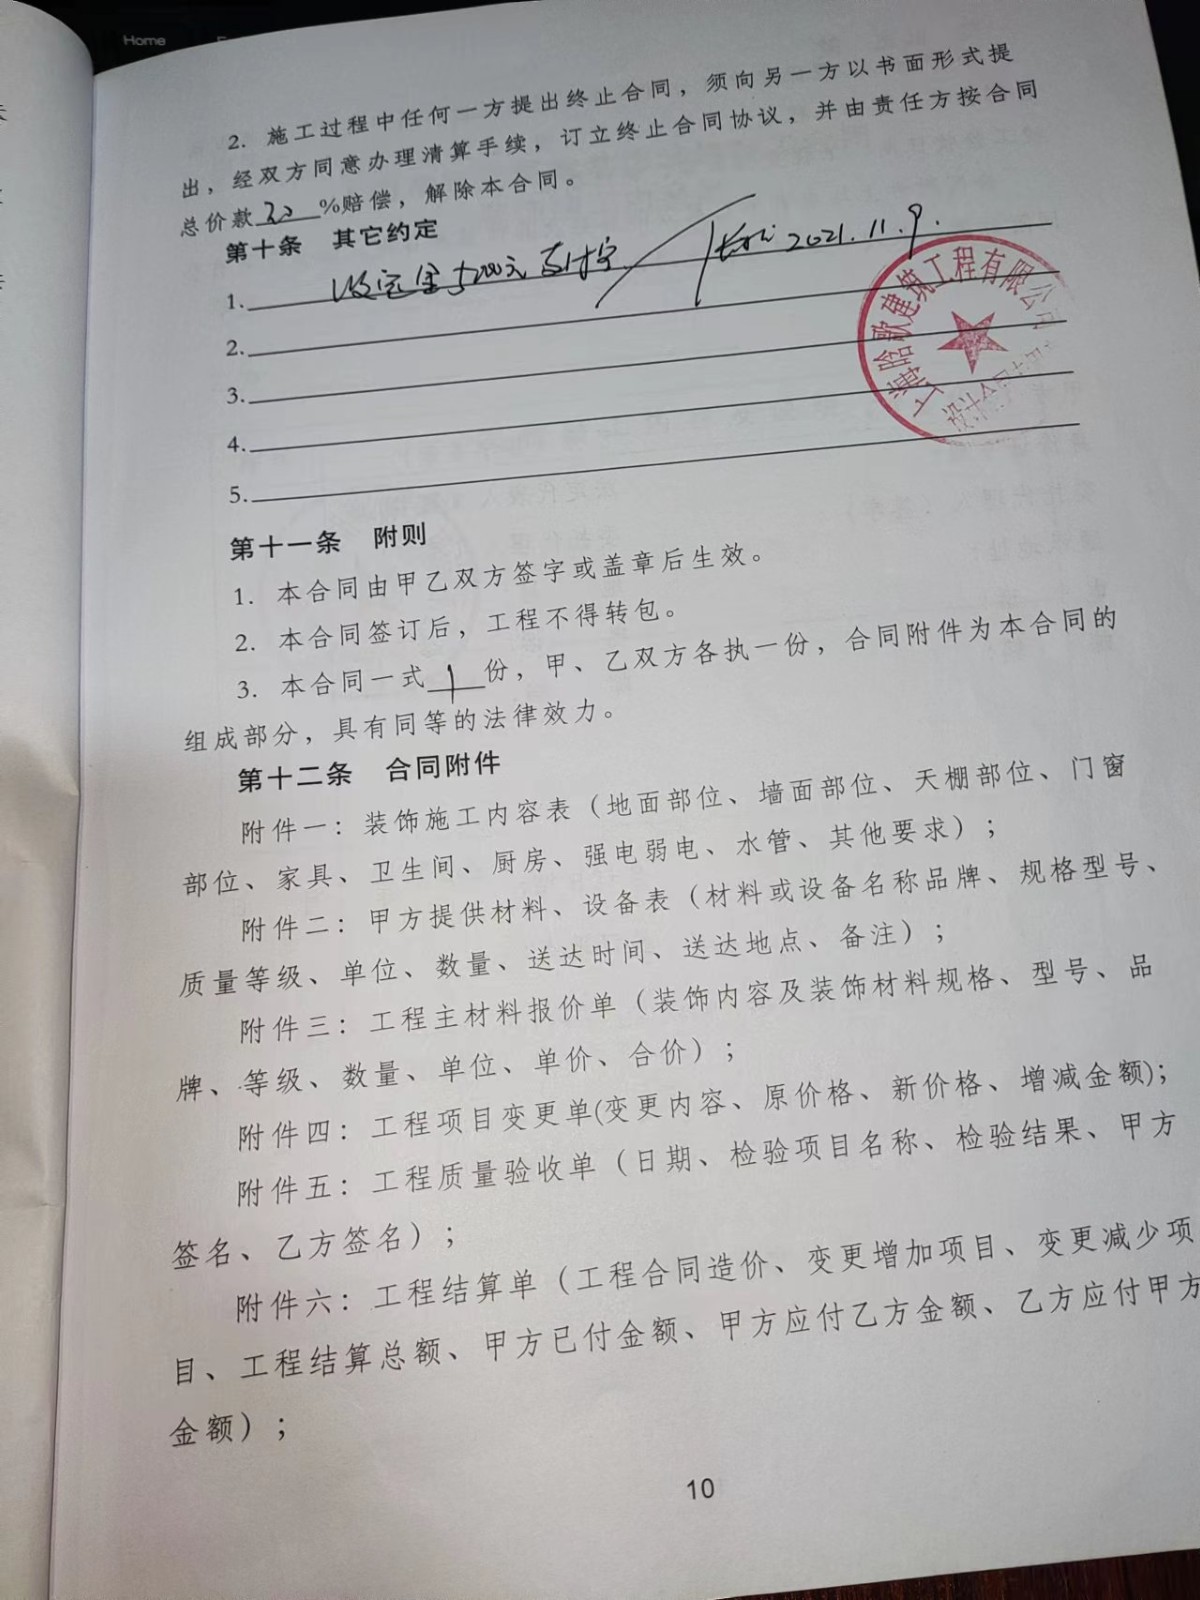 Home
2. 施工过程中任何一方提出终止合同，须向另一方以书面形式提
出，经双方同意办理清算手续，订立终止合同协议，并由责任方按合同
总价款20%赔偿，解除本合同。
第十条 其它约定
1. 收定金5200元 2021.11.9.
2.
3.
4.
5.
上海晗歌建筑工程有限公司
设计合同专用
第十一条 附则
1. 本合同由甲乙双方签字或盖章后生效。
2. 本合同签订后，工程不得转包。
3. 本合同一式 份，甲、乙双方各执一份，合同附件为本合同的
组成部分，具有同等的法律效力。
第十二条 合同附件
附件一：装饰施工内容表（地面部位、墙面部位、天棚部位、门窗
部位、家具、卫生间、厨房、强电弱电、水管、其他要求）；
附件二：甲方提供材料、设备表（材料或设备名称品牌、规格型号、
质量等级、单位、数量、送达时间、送达地点、备注）；
附件三：工程主材料报价单（装饰内容及装饰材料规格、型号、品
牌、等级、数量、单位、单价、合价）；
附件四：工程项目变更单(变更内容、原价格、新价格、增减金额)；
附件五：工程质量验收单（日期、检验项目名称、检验结果、甲方
签名、乙方签名）；
附件六：工程结算单（工程合同造价、变更增加项目、变更减少项
目、工程结算总额、甲方已付金额、甲方应付乙方金额、乙方应付甲方
金额）；
10